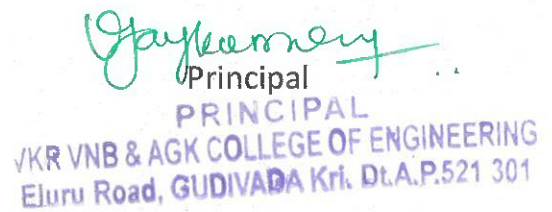 Principal
PRINCIPAL
VKR VNB & AGK COLLEGE OF ENGINEERING
Eluru Road, GUDIVADA Kri. Dt.A.P.521 301